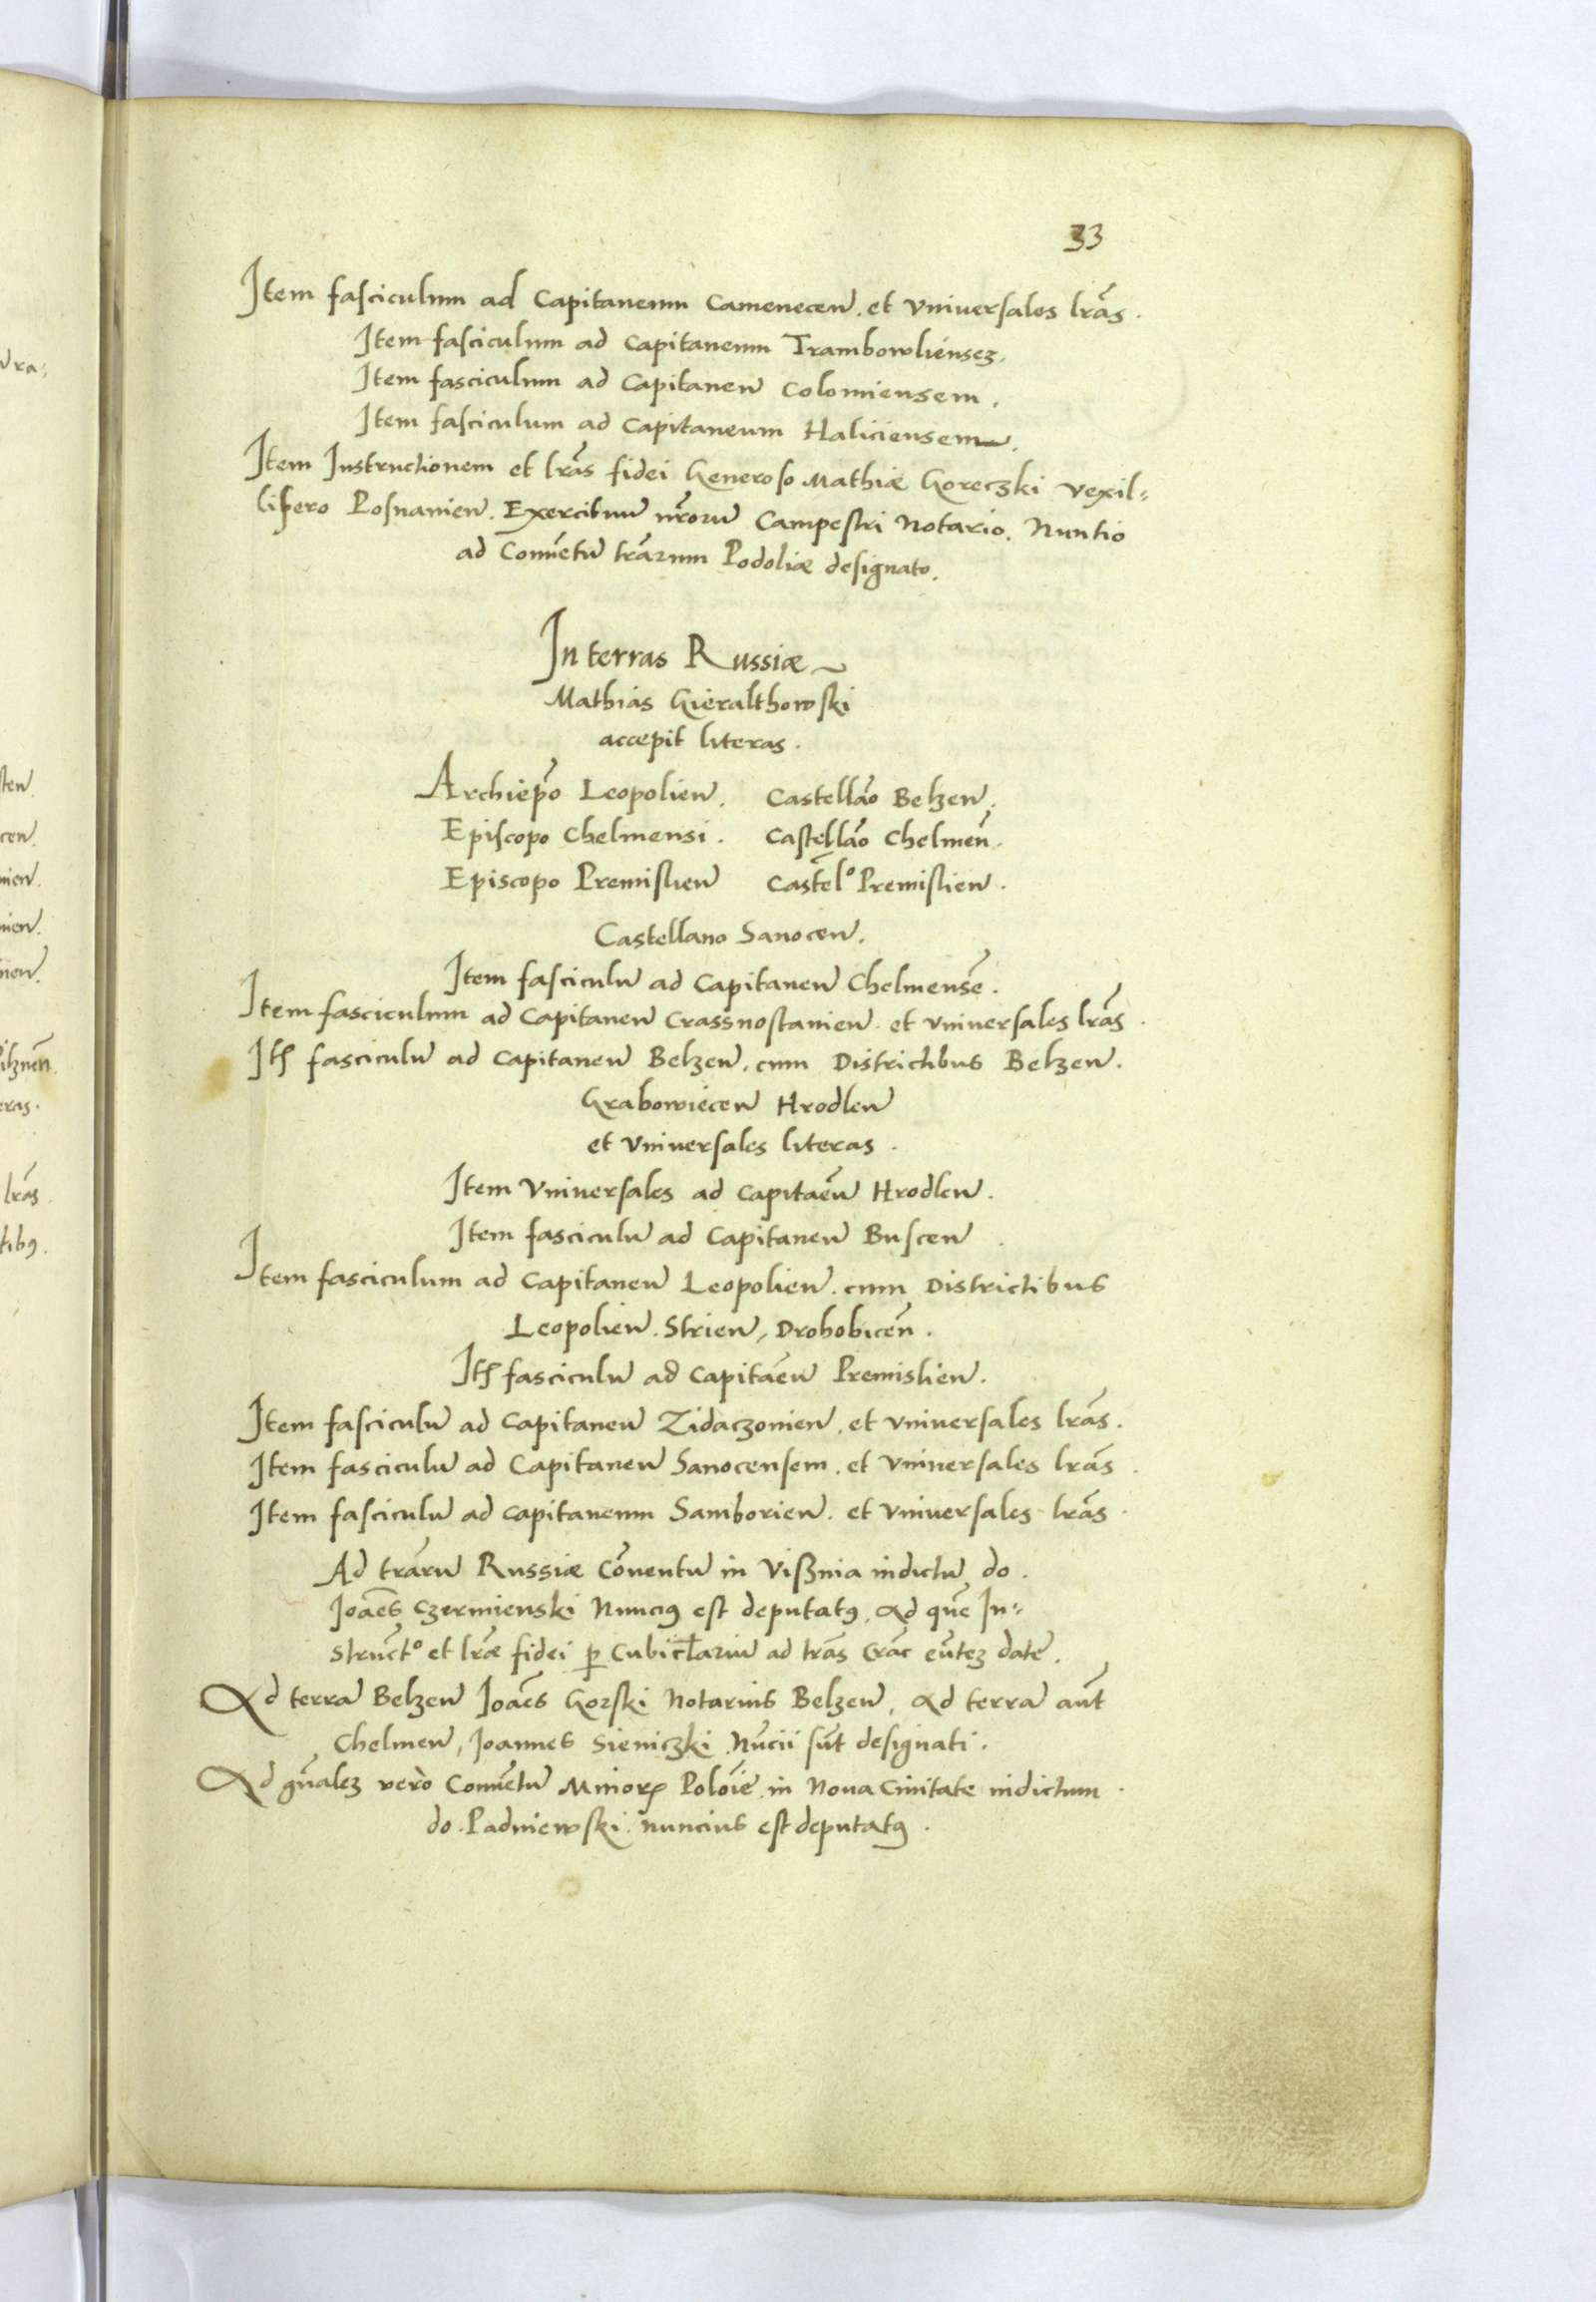 33
Item fasciculum ad Capitaneum Camenecen. et Vniuersales lrãs.
Item fasciculum ad Capitaneum Trambowliensez.
Item fasciculum ad Capitaneu Colomiensem.
Item fasciculum ad Capitaneum Haliciensem.
Item Instructionem et lrãs fidei Generoso Mathiæ Goreczki Vexil=
lifero Posnanien. Exercituu nrõru Campestri Notario. Nuntio
ad Conuẽtu trãrum Podoliæ designato.
In terras Russiæ
Mathias Gieralthowski
accepit literas.
Archiepõ Leopolien. Castellão Belzen.
Episcopo Chelmensi. Castellão Chelmeñ.
Episcopo Premislien Castel̃o Premislien.
Castellano Sanocen.
Item fasciculu ad Capitaneu Chelmensẽ.
Item fasciculum ad Capitaneu Crassnostanien. et vniuersales lrãs.
Itẽ fasciculu ad Capitaneu Belzen. cum Districtibus Belzen.
Grabowiecen Hrodlen
et Vniuersales literas.
Item Vniuersales ad Capitaẽu Hrodlen.
Item fasciculu ad Capitaneu Buscen
Item fasciculum ad Capitaneu Leopolien. cum Districtibus
Leopolien. Strien, Drohobiceñ.
Itẽ fasciculu ad Capitaẽu Premislien.
Item fasciculu ad Capitaneu Zidaczonien. et vniuersales lrãs.
Item fasciculu ad Capitaneu Sanocensem. et Vniuersales lrãs.
Item fasciculu ad Capitaneum Samborien. et Vniuersales lrãs.
Ad trãru Russiæ Cõuentu in Vißnia indictu do.
Joães Czermienski Nunciꝯ est deputatꝯ. Ad quẽ In=
struct̃o et lræ̃ fidei ꝑ Cubicl̃ariu ad trãs Crãc eũtez datẽ.
Ad terra Belzen Joães Gorski Notarius Belzen. Ad terra aũt
Chelmen, Joannes Sieniczki Nũcii sũt designati.
Ad gñalez verò Conuẽtu Minorꝝ Polõiẽ in Noua Ciuitate indictum
do. Padniewski nuncius est deputatꝯ.